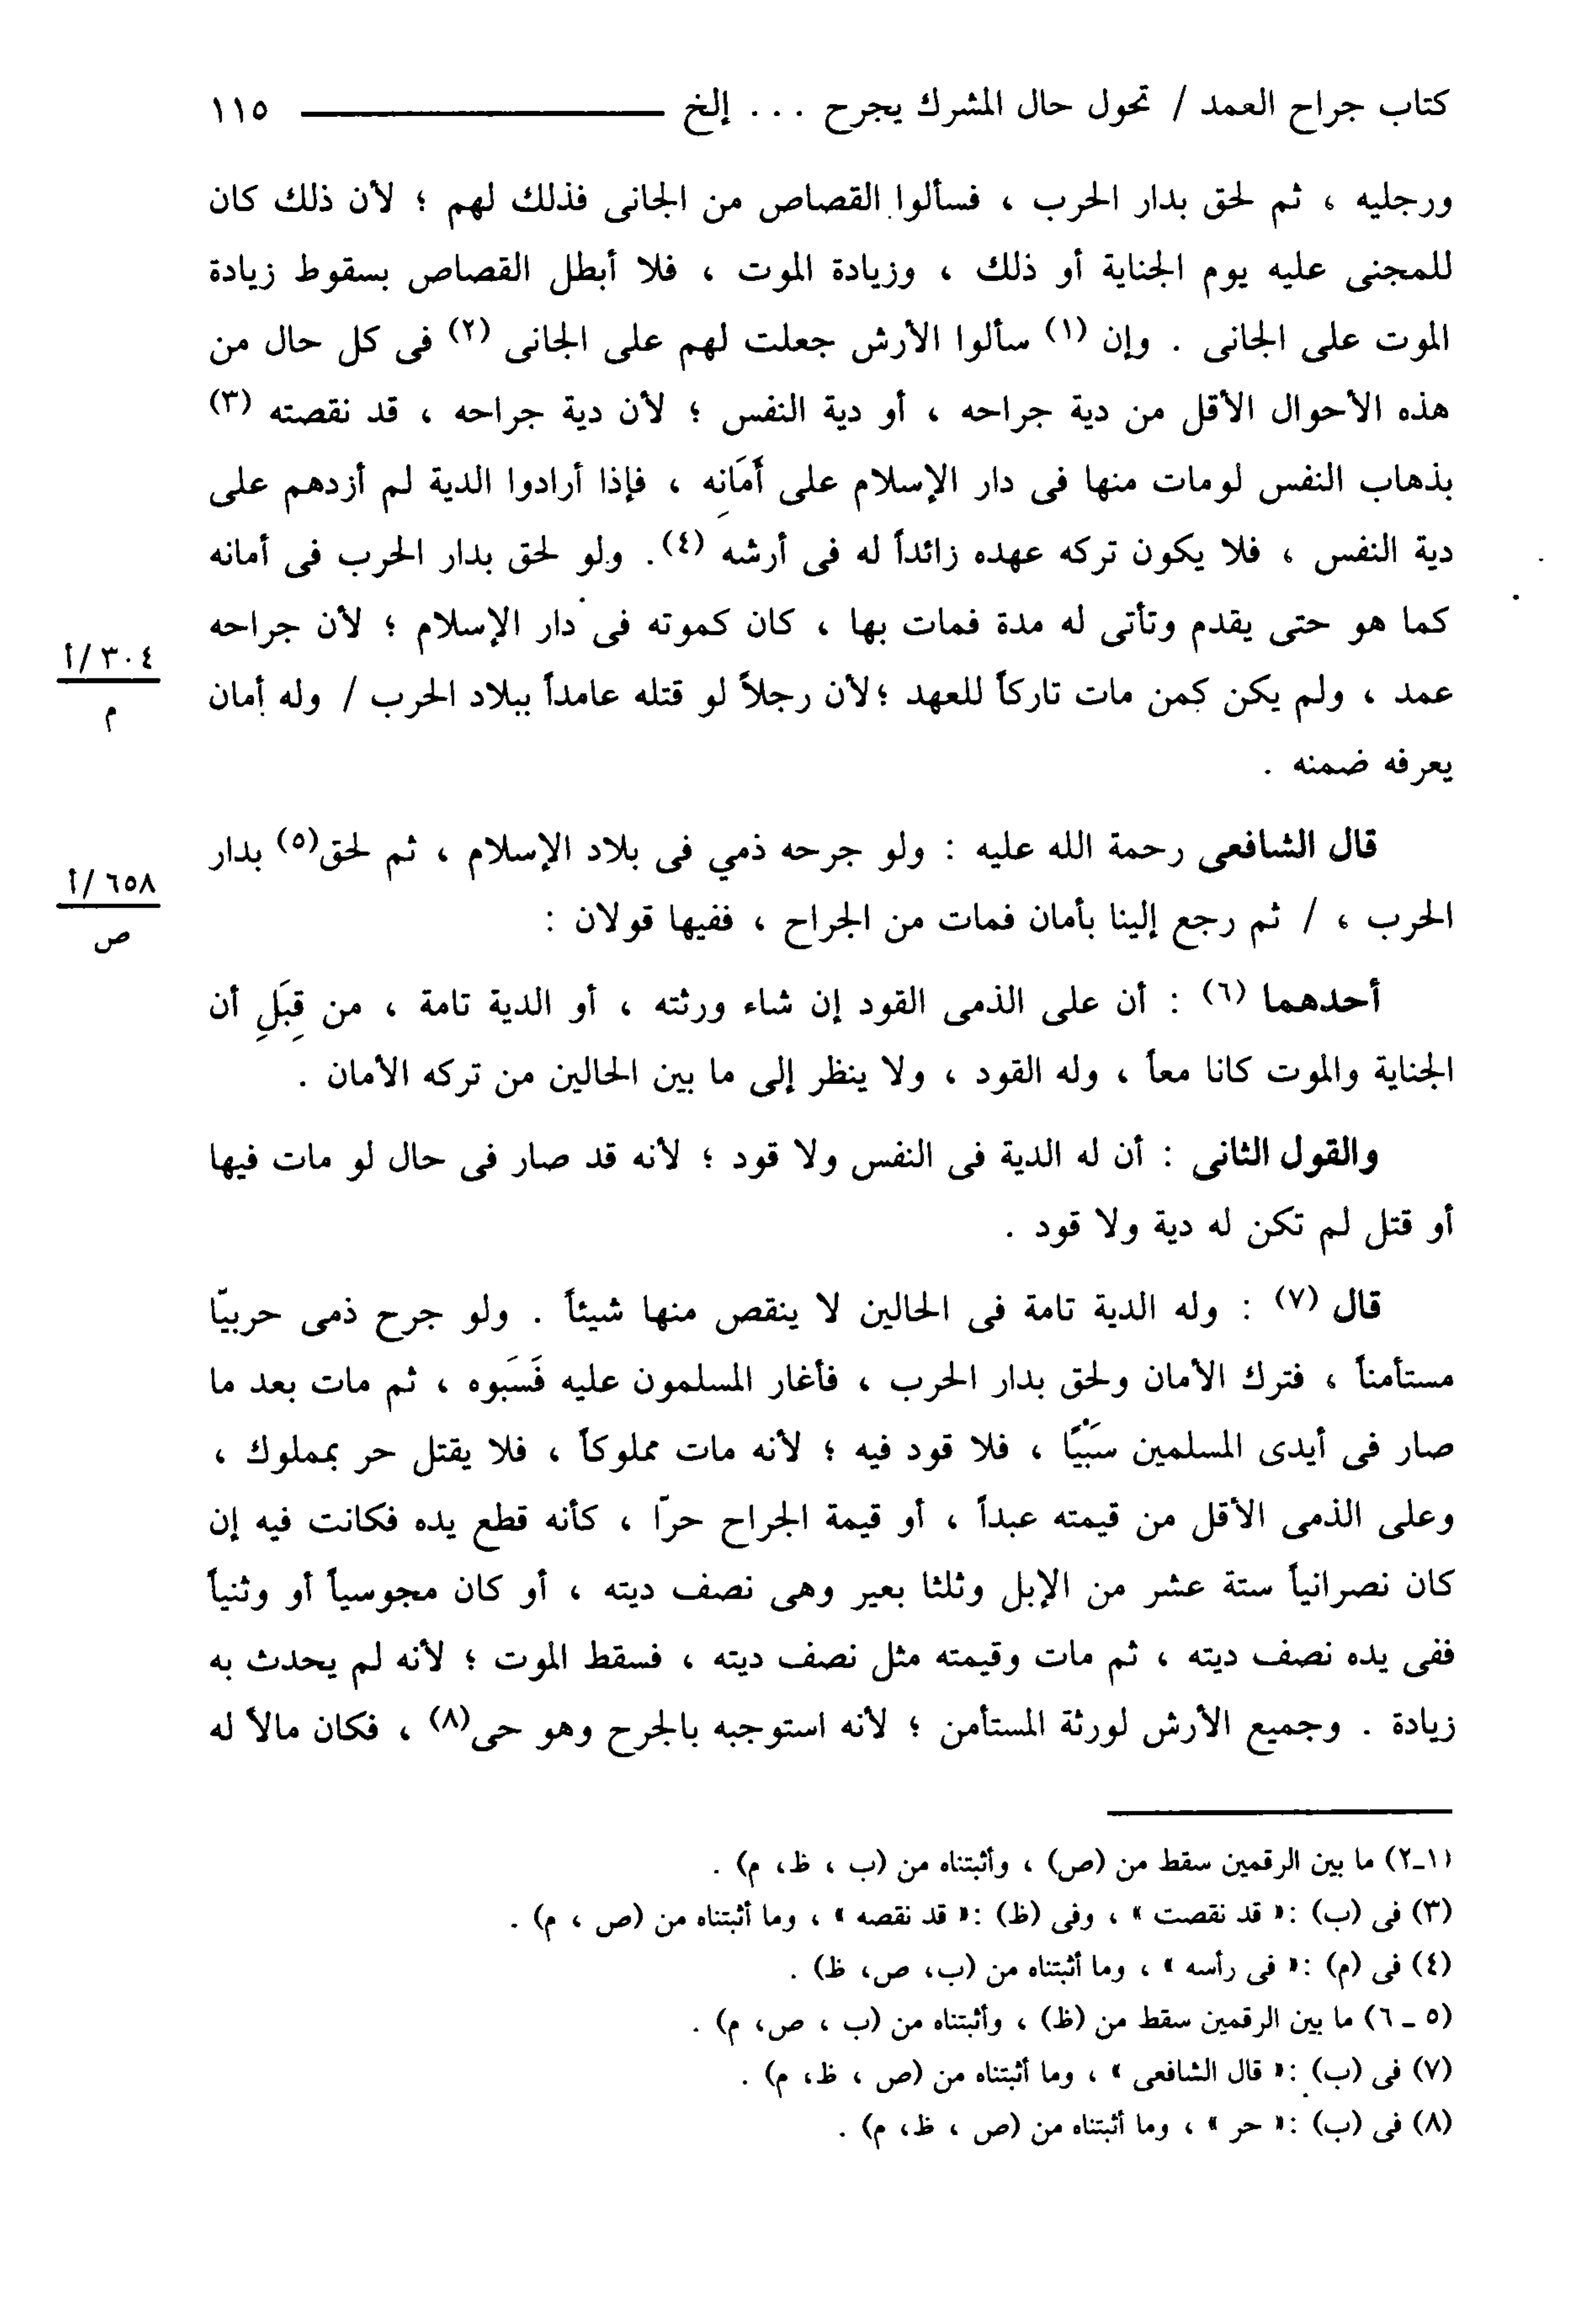 كتاب جراح العمد / تحول حال المشرك يجرح . . . إلخ ١١٥
ورجليه ، ثم لحق بدار الحرب ، فسألوا القصاص من الجانى فذلك لهم ؛ لأن ذلك كان
للمجنى عليه يوم الجناية أو ذلك ، وزيادة الموت ، فلا أبطل القصاص بسقوط زيادة
الموت على الجانى . وإن (١) سألوا الأرش جعلت لهم على الجانى (٢) فى كل حال من
هذه الأحوال الأقل من دية جراحه ، أو دية النفس ؛ لأن دية جراحه ، قد نقصته (٣)
بذهاب النفس لومات منها فى دار الإسلام على أَمَانِه ، فإذا أرادوا الدية لم أزدهم على
دية النفس ، فلا يكون تركه عهده زائداً له فى أرشه (٤). ولو لحق بدار الحرب فى أمانه
كما هو حتى يقدم وتأتى له مدة فمات بها ، كان كموته فى دار الإسلام ؛ لأن جراحه
٣٠٤/أ
عمد ، ولم يكن كمن مات تاركاً للعهد ؛لأن رجلاً لو قتله عامداً ببلاد الحرب / وله أمان
م
يعرفه ضمنه .
قال الشافعى رحمة الله عليه : ولو جرحه ذمي فى بلاد الإسلام ، ثم لحق(٥) بدار
٦٥٨/أ
الحرب ، / ثم رجع إلينا بأمان فمات من الجراح ، ففيها قولان :
ص
أحدهما (٦) : أن على الذمى القود إن شاء ورثته ، أو الدية تامة ، من قِبَلِ أن
الجناية والموت كانا معاً ، وله القود ، ولا ينظر إلى ما بين الحالين من تركه الأمان .
والقول الثانى : أن له الدية فى النفس ولا قود ؛ لأنه قد صار فى حال لو مات فيها
أو قتل لم تكن له دية ولا قود .
قال (٧) : وله الدية تامة فى الحالين لا ينقص منها شيئاً . ولو جرح ذمى حربيّا
مستأمناً ، فترك الأمان ولحق بدار الحرب ، فأغار المسلمون عليه فَسَبَوه ، ثم مات بعد ما
صار فى أيدى المسلمين سَبْيًا ، فلا قود فيه ؛ لأنه مات مملوكاً ، فلا يقتل حر بمملوك ،
وعلى الذمى الأقل من قيمته عبداً ، أو قيمة الجراح حرّا ، كأنه قطع يده فكانت فيه إن
كان نصرانياً ستة عشر من الإبل وثلثا بعير وهى نصف ديته ، أو كان مجوسياً أو وثنياً
ففى يده نصف ديته ، ثم مات وقيمته مثل نصف ديته ، فسقط الموت ؛ لأنه لم يحدث به
زيادة . وجميع الأرش لورثة المستأمن ؛ لأنه استوجبه بالجرح وهو حى(٨) ، فكان مالاً له
(١_٢) ما بين الرقمين سقط من (ص) ، وأثبتناه من (ب ، ظ، م) .
(٣) فى (ب) :« قد نقصت » ، وفى (ظ) :« قد نقصه » ، وما أثبتناه من (ص ، م) .
(٤) فى (م) :« فى رأسه » ، وما أثبتناه من (ب، ص، ظ) .
(٥ _ ٦) ما بين الرقمين سقط من (ظ) ، وأثبتناه من (ب ، ص، م) .
(٧) فى (ب) :« قال الشافعى » ، وما أثبتناه من (ص ، ظ، م) .
(٨) فى (ب) :« حر » ، وما أثبتناه من (ص ، ظ، م) .